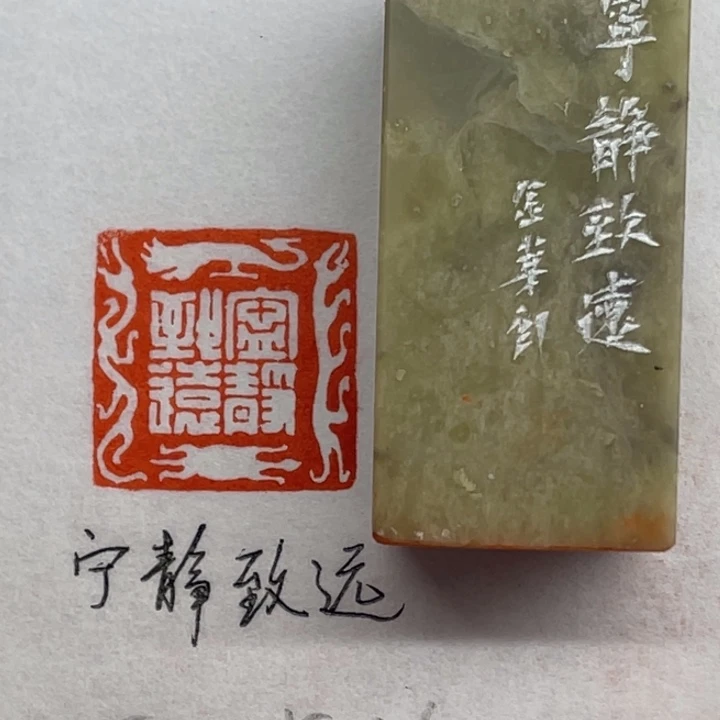 寧靜致遠
宁静致远
寧靜致遠
金華制